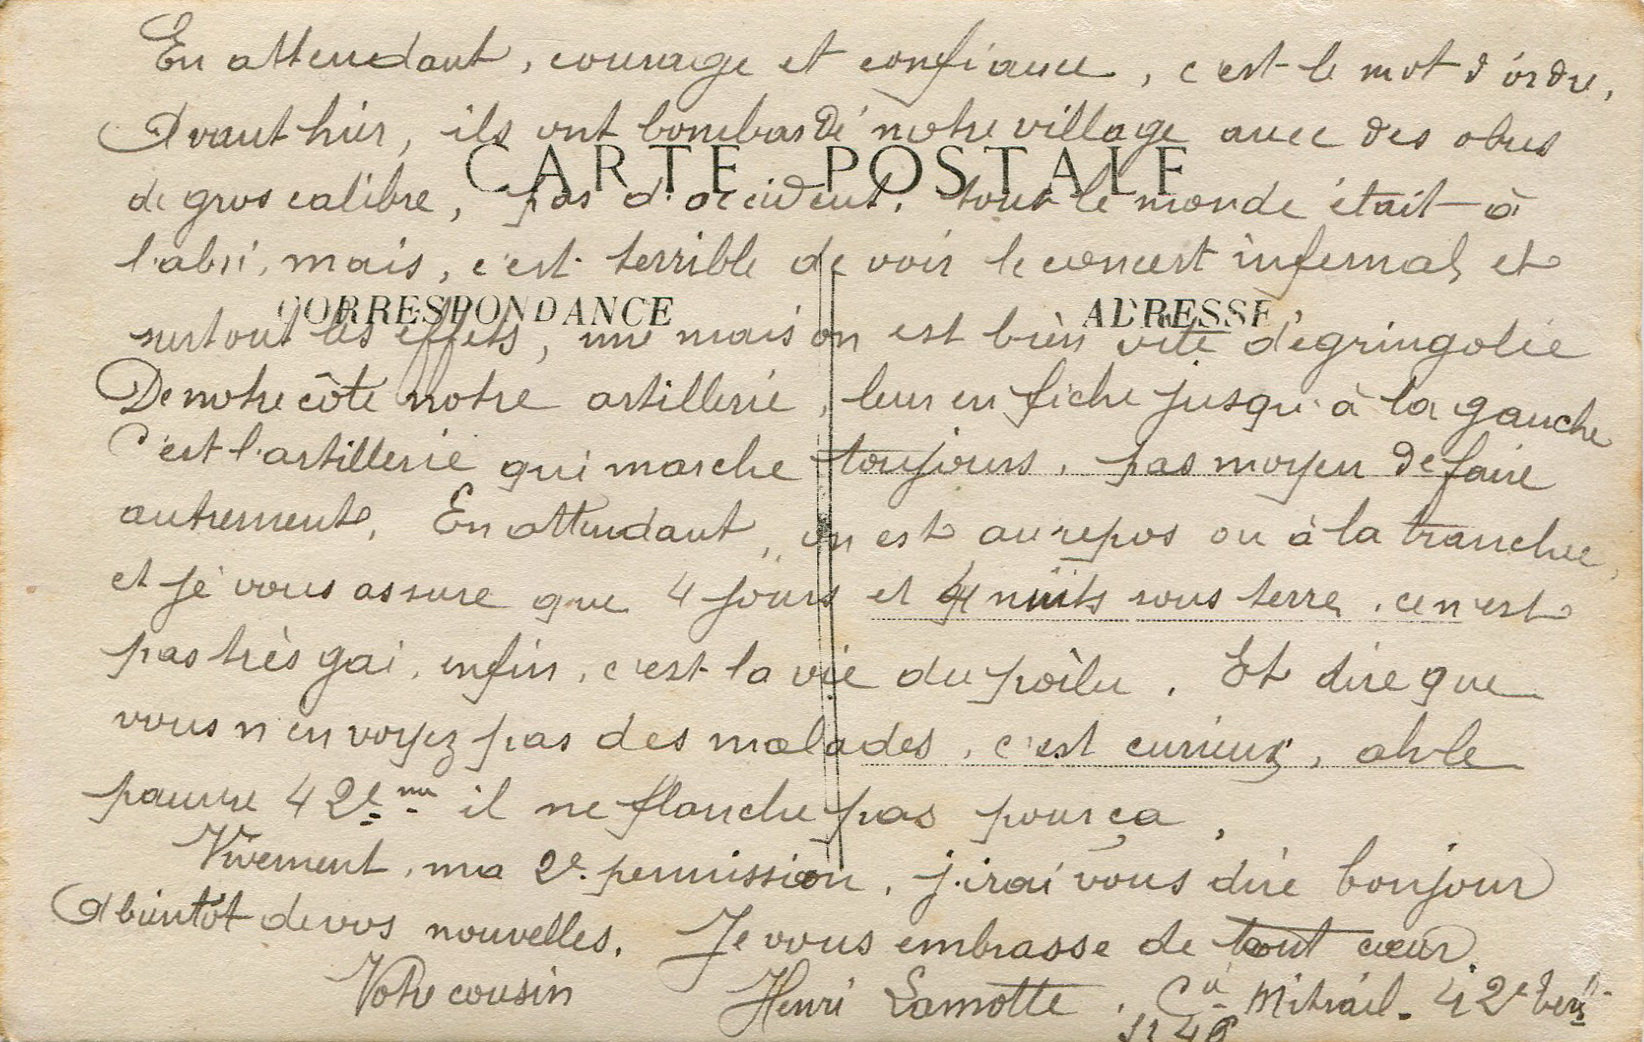 En attendant, courage et confiance, c'est le mot d'ordre,
Avant hier, ils ont bombardé notre village avec des obus
CARTE POSTALE
de gros calibre, pas d'accident, tout le monde était à
l'abri, mais, c'est terrible de voir le concert infernal, et
CORRESPONDANCE
ADRESSE
surtout les effets, une maison est bien vite dégringolée
De notre côté notre artillerie, leur en fiche jusqu'à la gauche
C'est l'artillerie qui marche toujours, pas moyen de faire
autrement, En attendant, on est au repos ou à la tranchée,
et je vous assure que 4 jours et 4 nuits sous terre, ce n'est
pas très gai, enfin, c'est la vie du poilu. Et dire que
vous n'envoyez pas des malades, c'est curieux, ah le
pauvre 42e il ne flanche pas pour ça,
Vivement, ma 2e permission, j'irai vous dire bonjour
A bientôt de vos nouvelles. Je vous embrasse de tout cœur.
Votre cousin Henri Lamotte. Cie Mitrail. 42e terri